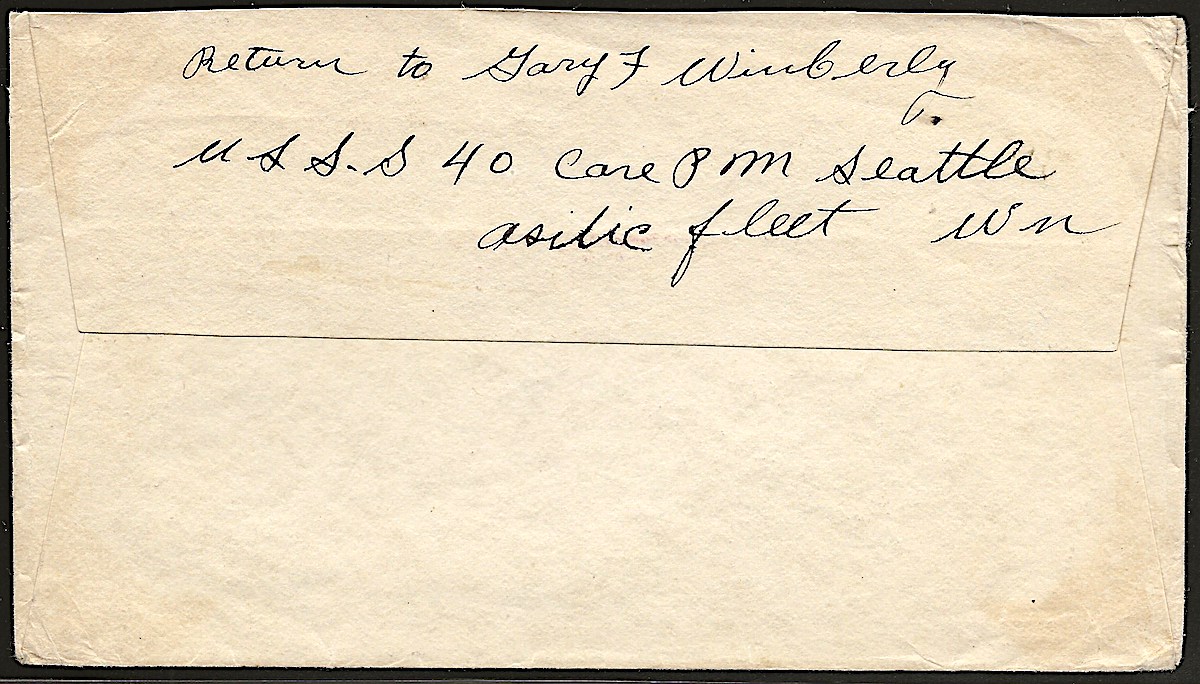 Return to Gary F Winberly
U S S. S 40 Care P M Seattle
asilic fleet Wn